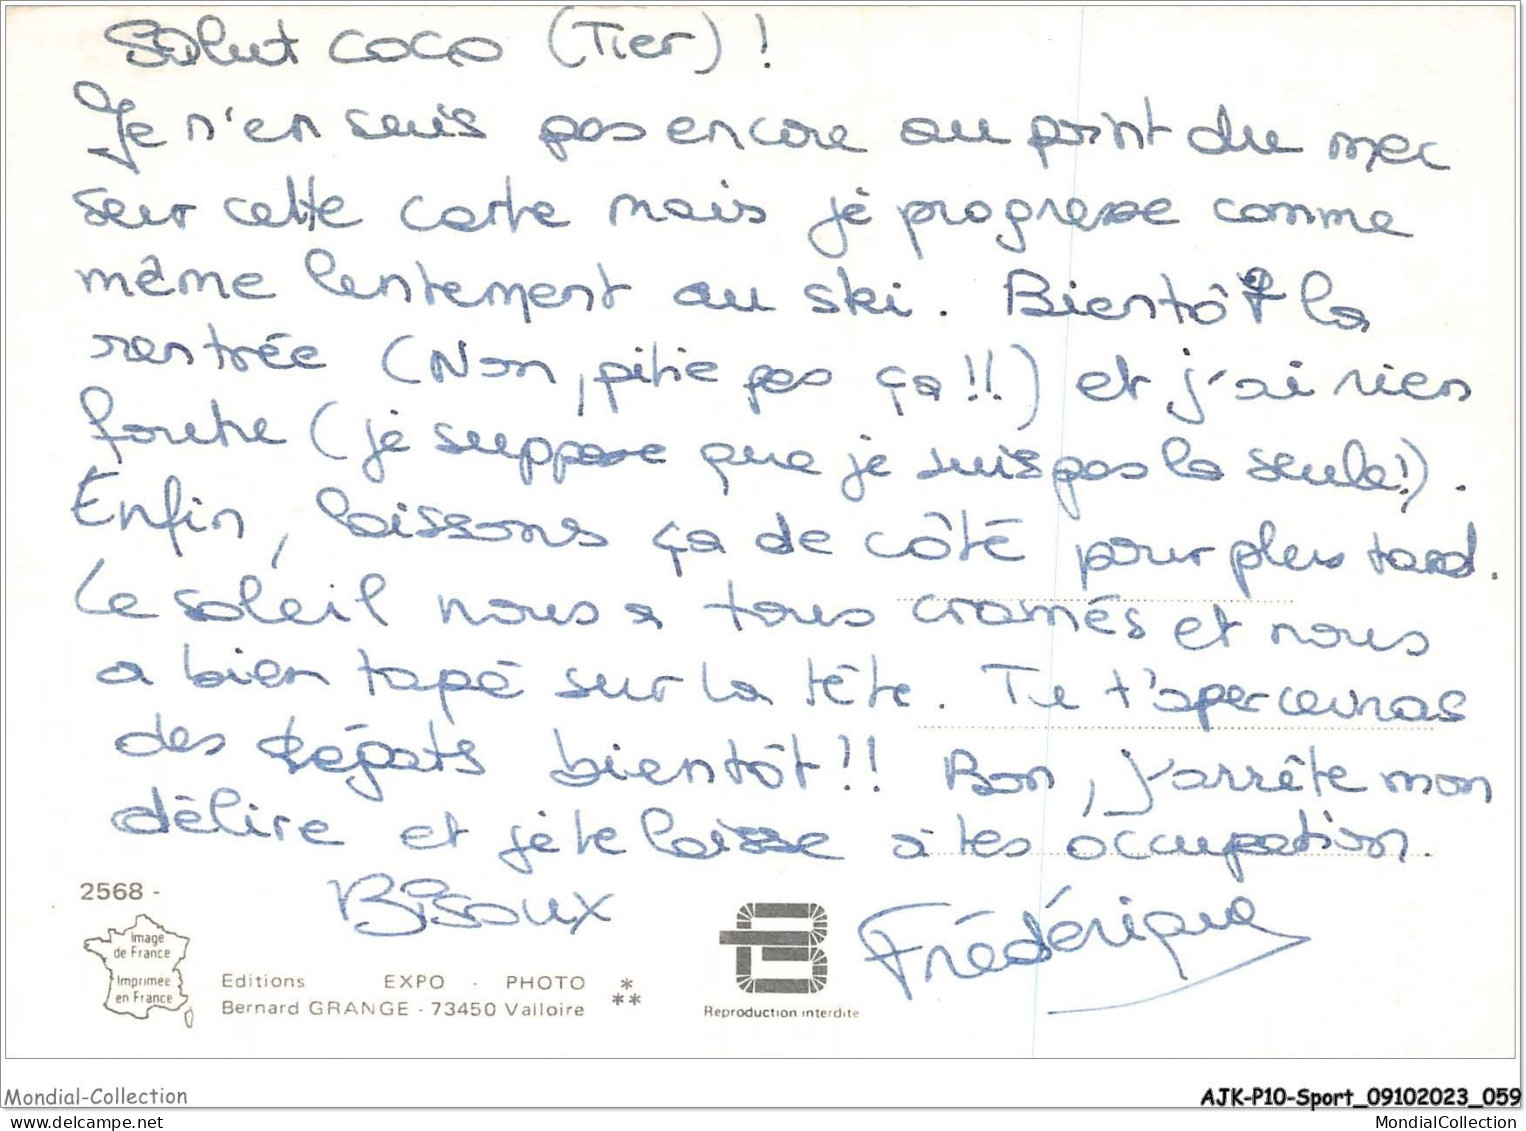 Salut coco (Tier) !
Je n'en suis pas encore au point du mec
sur cette carte mais je progresse comme
même lentement au ski. Bientôt la
rentrée (Non, pitie pas ça !!) et j'ai rien
foutre (je suppose que je suis pas la seule!).
Enfin, laissons ça de côté pour plus tard.
Le soleil nous a tous cramés et nous
a bien tapé sur la tête. Tu t'apercevras
des dégats bientôt !! Bon, j'arrête mon
délire et je te laisse à tes occupation.
Bisoux
Frédérique
2568 -
Image
de France
Imprimée
en France
Editions EXPO - PHOTO *
Bernard GRANGE - 73450 Valloire **
Reproduction interdite
Mondial-Collection
AJK-P10-Sport_09102023_059
MondialCollection